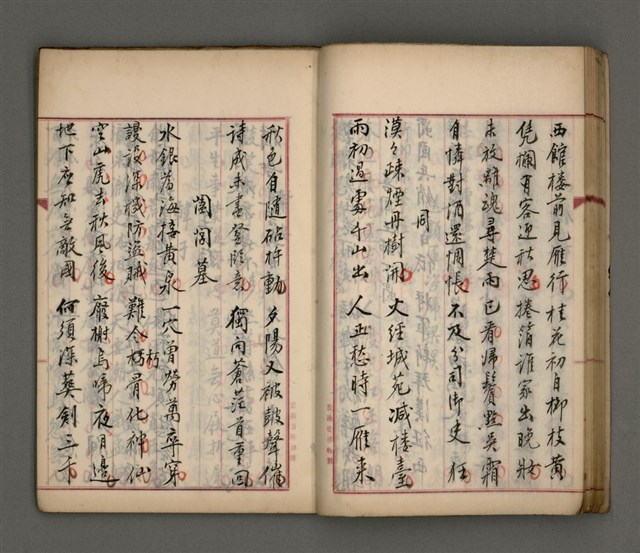 西館樓前見雁行　桂花初白柳枝黃
凭欄有客迎秋思　捲箔誰家出晚妝
未放離魂尋楚雨　已看歸鬢點吳霜
自憐對酒還惆悵　不及分司御史狂
同
漠々疎煙丹樹開　大經城苑減樓臺
雨初過處千山出　人正愁時一雁來
秋色自隨砧杵動　夕陽又被鼓聲催
詩成未盡登臨意　獨向蒼茫首重回
闔閭墓
水銀為海接黃泉　一穴曾勞萬卒穿
謾設深機防盜賊　難令朽骨化神仙
朽
空山虎去秋風後　廢榭烏啼夜月邊
地下應知無敵國　何須深葬劍三千